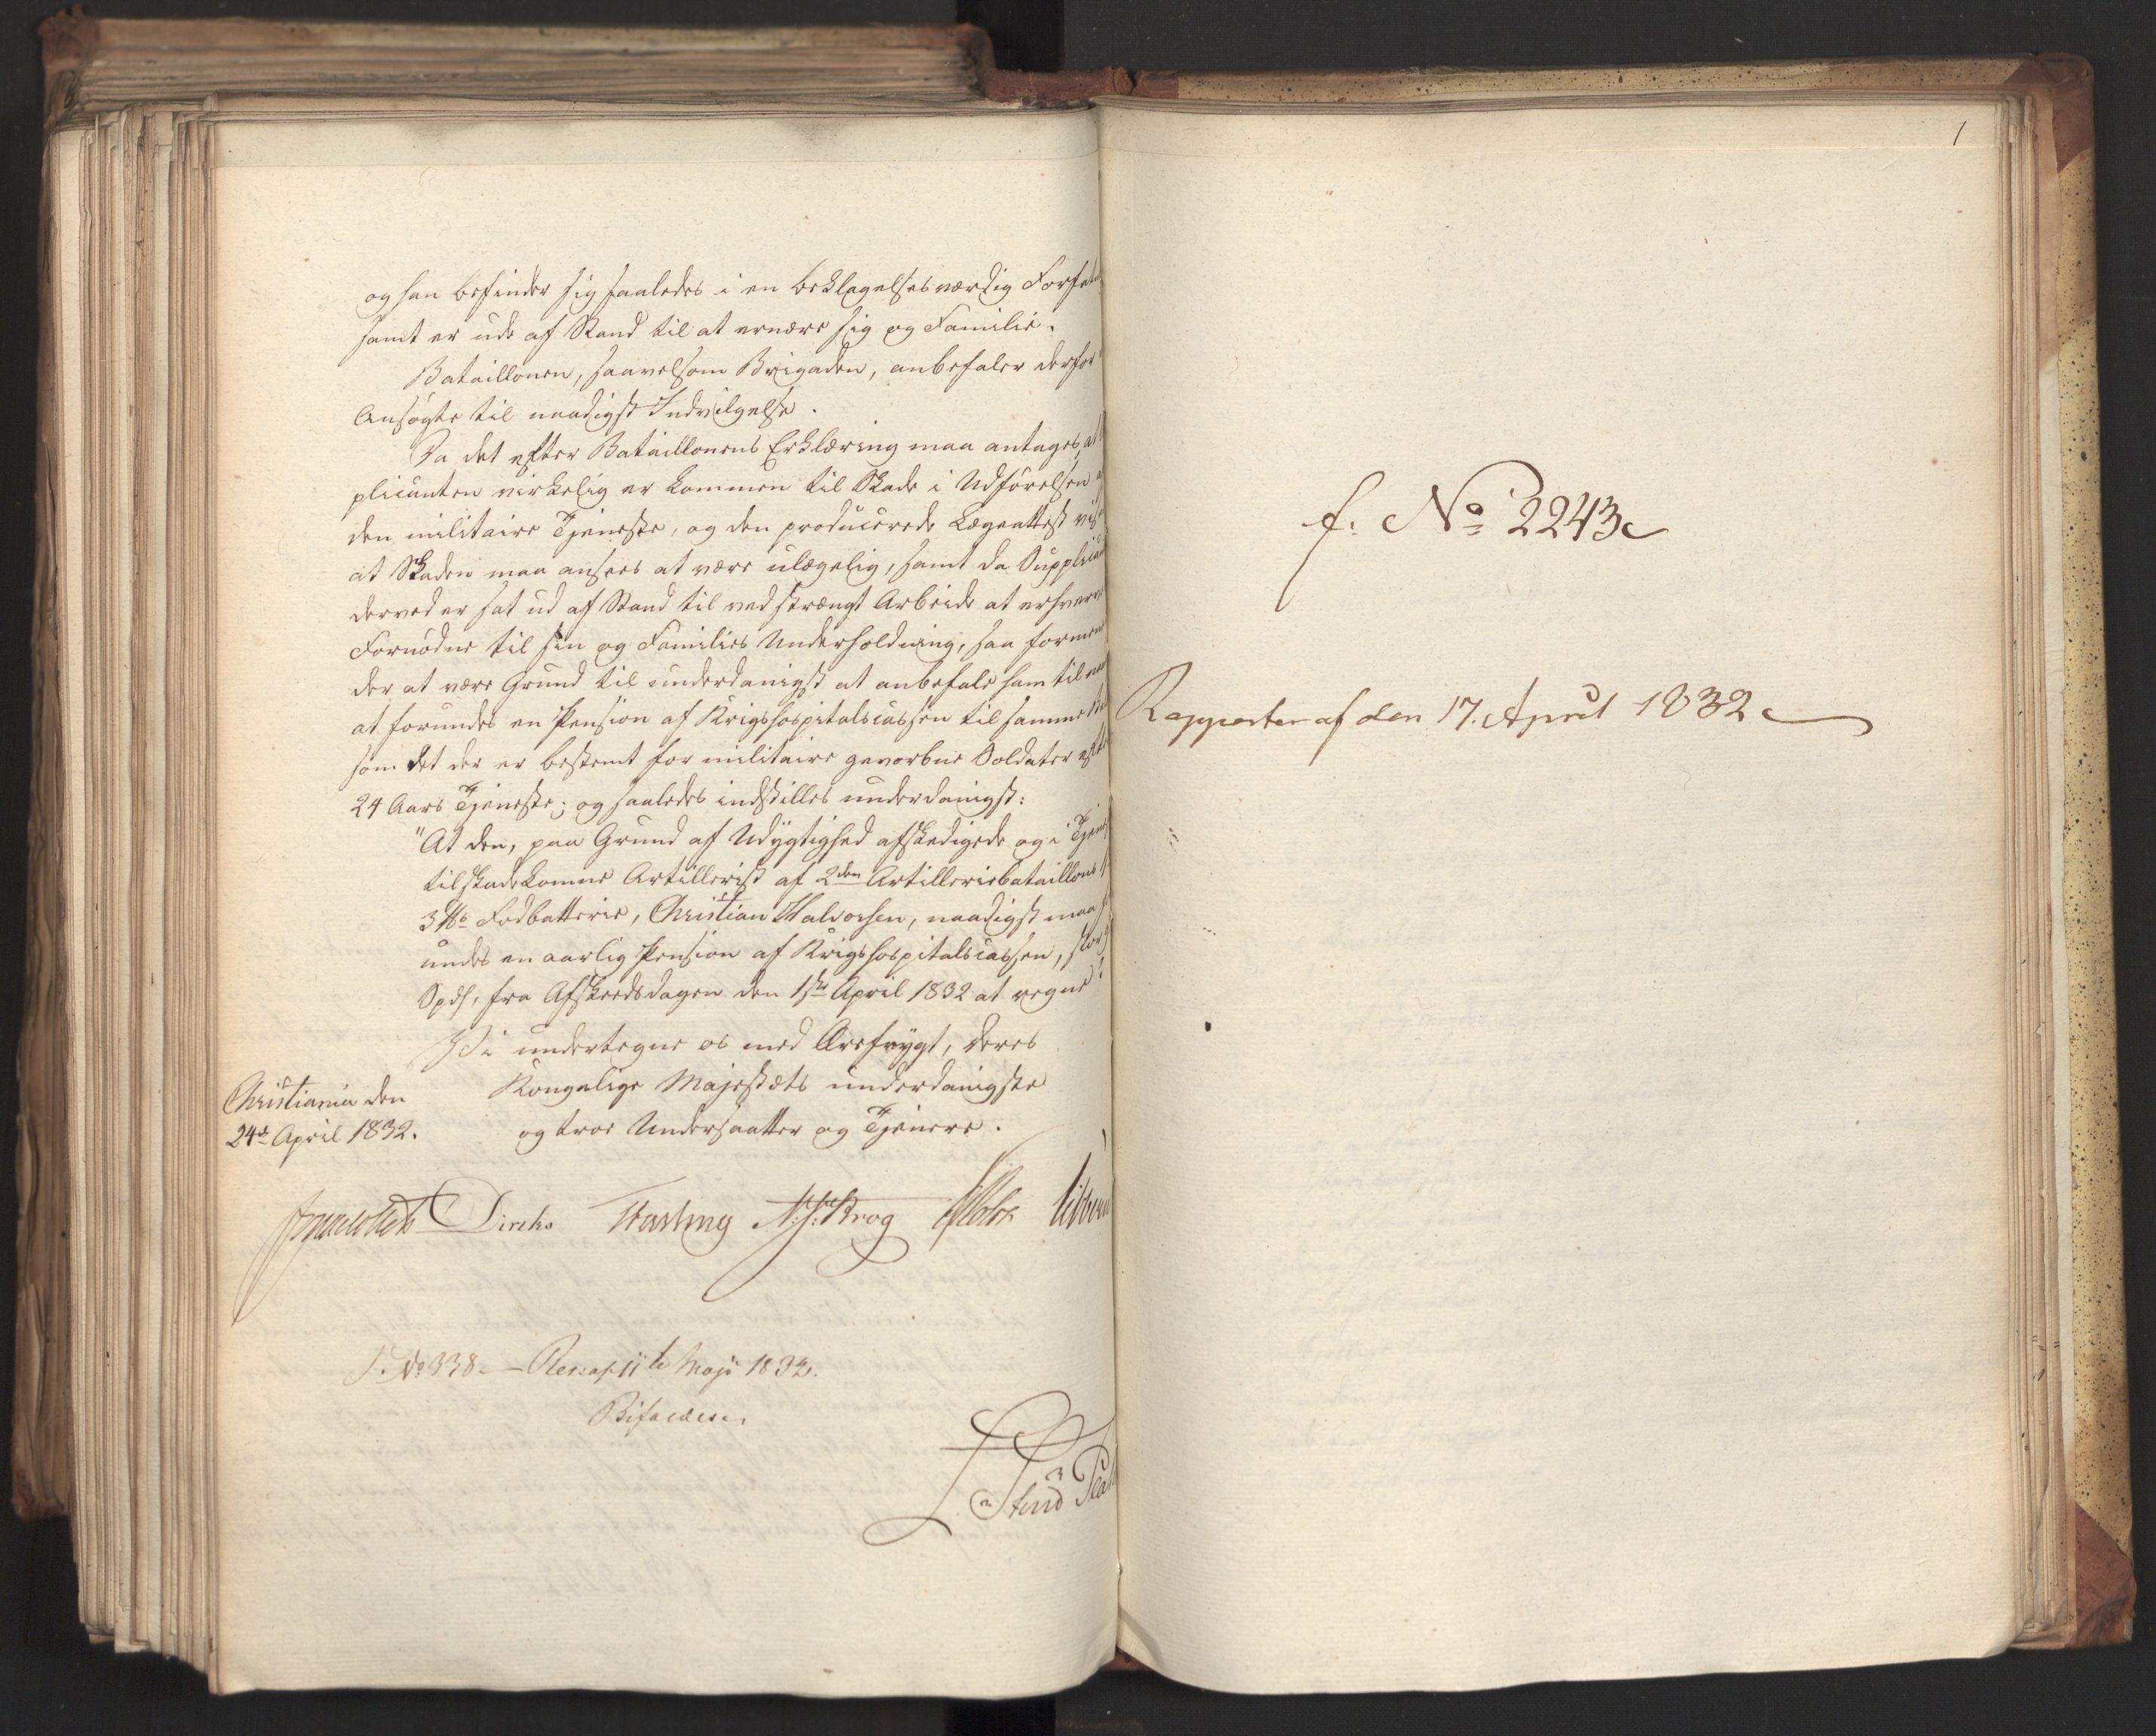 og han befinder sig saaledes i en beklagelsesværdig Forfat
samt er ude af Stand til at ernære sig og Familie.
Bataillonen, saavelsom Brigaden, anbefaler derfor
Ansøgte til naadigst Indvilgelse.
Da det efter Bataillonens Erklæring maa antages, at
plicanten virkelig er kommen til Skade i Udførelsen
den militaire Tjeneste, og den producerede Lægeattest vis
at Skaden maa ansees at være ulægelig, samt da Supplican
derved er sat ud af Stand til ved strængt Arbeide at erhverve
Fornødne til sin og Families Underholdning, saa formene
der at være Grund til underdanigst at anbefale ham til
at forundes en Pension af Krigshospitalscassen til samme
som det der er bestemt for militaire gevorbne Soldater efter
24 Aars Tjeneste; og saaledes indstilles underdanigst:
"At den, paa Grund af Udygtighed afskedigede og i Tjenes
tilskadekomne Artillerist af 2den Artilleriebataillons
3die Fodbatterie, Christian Halvorsen, naadigst maa
undes en aarlig Pension af Krigshospitalscassen, stor
Spds, fra Afskeedsdagen den 1ste April 1832 at regne"
Vi undertegne os med Ærefrygt, Deres
Kongelige Majestæts underdanigste
og troe Undersaatter og Tjenere.
Christiania den
24de April 1832.
Diriks Fasting Krog
J. No 338. – Res: af 11te Maji 1832.
Bifaldes.
f. No 2243
Rapporten af den 17. April 1832
1